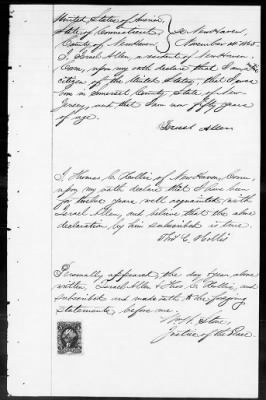 United States of America,
State of Connecticut, } ss New Haven,
County of New Haven } November 1865
I, Israel Allen, a resident of New Haven
Conn, upon my oath declare that I am a
citizen of the United States, that I was
born in Somerset County State of New
Jersey, and that I am now fifty years
of age.
Israel Allen
I, Thomas C. Hollis of New Haven, Conn,
upon my oath declare that I have been
for twelve years well acquainted with
Israel Allen, and believe that the above
declaration, by him subscribed is true
Thos C. Hollis
Personally appeared the day & year above
written, Israel Allen & Thos C. Hollis, and
subscribed and made oath to the foregoing
statements before me.
Justice of the Peace